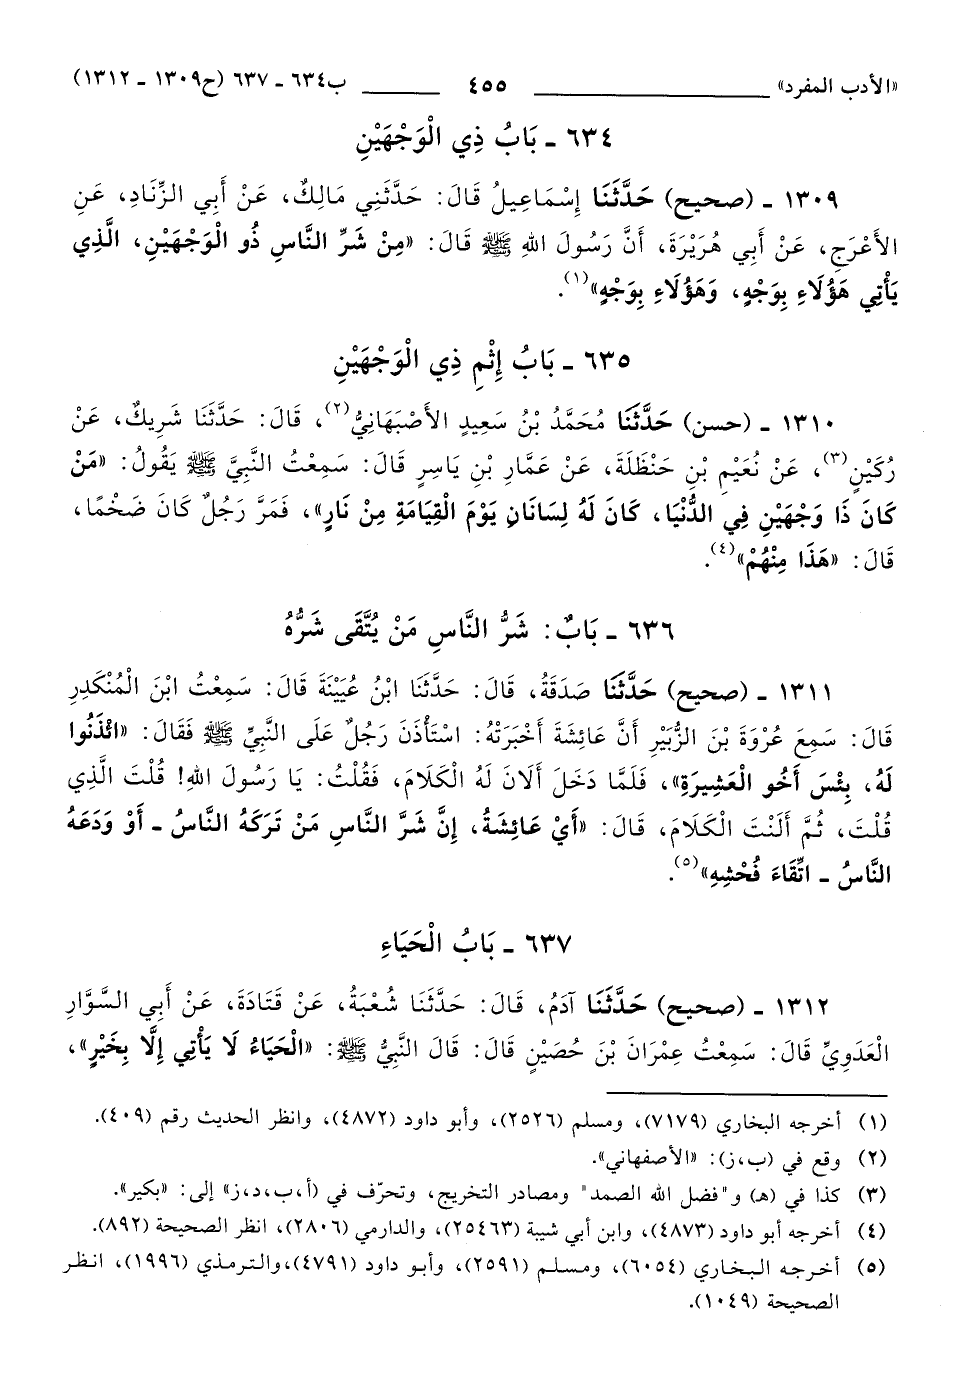 «الأدب المفرد» ٤٥٥ ب٦٣٤ ـ ٦٣٧ (ح١٣٠٩ ـ ١٣١٢)
٦٣٤ ـ بَابُ ذِي الْوَجْهَيْنِ
١٣٠٩ ـ (صحيح) حَدَّثَنَا إِسْمَاعِيلُ قَالَ: حَدَّثَنِي مَالِكٌ، عَنْ أَبِي الزِّنَادِ، عَنِ
الأَعْرَجِ، عَنْ أَبِي هُرَيْرَةَ، أَنَّ رَسُولَ اللهِ ﷺ قَالَ: «مِنْ شَرِّ النَّاسِ ذُو الْوَجْهَيْنِ، الَّذِي
يَأْتِي هَؤُلَاءِ بِوَجْهٍ، وَهَؤُلَاءِ بِوَجْهٍ»(١).
٦٣٥ ـ بَابُ إِثْمِ ذِي الْوَجْهَيْنِ
١٣١٠ ـ (حسن) حَدَّثَنَا مُحَمَّدُ بْنُ سَعِيدٍ الأَصْبَهَانِيُّ(٢)، قَالَ: حَدَّثَنَا شَرِيكٌ، عَنْ
رُكَيْنٍ(٣)، عَنْ نُعَيْمِ بْنِ حَنْظَلَةَ، عَنْ عَمَّارِ بْنِ يَاسِرٍ قَالَ: سَمِعْتُ النَّبِيَّ ﷺ يَقُولُ: «مَنْ
كَانَ ذَا وَجْهَيْنِ فِي الدُّنْيَا، كَانَ لَهُ لِسَانَانِ يَوْمَ الْقِيَامَةِ مِنْ نَارٍ»، فَمَرَّ رَجُلٌ كَانَ ضَخْمًا،
قَالَ: «هَذَا مِنْهُمْ»(٤).
٦٣٦ ـ بَابٌ: شَرُّ النَّاسِ مَنْ يُتَّقَى شَرُّهُ
١٣١١ ـ (صحيح) حَدَّثَنَا صَدَقَةُ، قَالَ: حَدَّثَنَا ابْنُ عُيَيْنَةَ قَالَ: سَمِعْتُ ابْنَ الْمُنْكَدِرِ
قَالَ: سَمِعَ عُرْوَةَ بْنَ الزُّبَيْرِ أَنَّ عَائِشَةَ أَخْبَرَتْهُ: اسْتَأْذَنَ رَجُلٌ عَلَى النَّبِيِّ ﷺ فَقَالَ: «ائْذَنُوا
لَهُ، بِئْسَ أَخُو الْعَشِيرَةِ»، فَلَمَّا دَخَلَ أَلَانَ لَهُ الْكَلَامَ، فَقُلْتُ: يَا رَسُولَ اللهِ! قُلْتَ الَّذِي
قُلْتَ، ثُمَّ أَلَنْتَ الْكَلَامَ، قَالَ: «أَيْ عَائِشَةُ، إِنَّ شَرَّ النَّاسِ مَنْ تَرَكَهُ النَّاسُ ـ أَوْ وَدَعَهُ
النَّاسُ ـ اتِّقَاءَ فُحْشِهِ»(٥).
٦٣٧ ـ بَابُ الْحَيَاءِ
١٣١٢ ـ (صحيح) حَدَّثَنَا آدَمُ، قَالَ: حَدَّثَنَا شُعْبَةُ، عَنْ قَتَادَةَ، عَنْ أَبِي السَّوَّارِ
الْعَدَوِيِّ قَالَ: سَمِعْتُ عِمْرَانَ بْنَ حُصَيْنٍ قَالَ: قَالَ النَّبِيُّ ﷺ: «الْحَيَاءُ لَا يَأْتِي إِلَّا بِخَيْرٍ»،
(١) أخرجه البخاري (٧١٧٩)، ومسلم (٢٥٢٦)، وأبو داود (٤٨٧٢)، وانظر الحديث رقم (٤٠٩).
(٢) وقع في (ب،ز): «الأصفهاني».
(٣) كذا في (هـ) و"فضل الله الصمد" ومصادر التخريج، وتحرّف في (أ،ب،د،ز» إلى: «بكير».
(٤) أخرجه أبو داود (٤٨٧٣)، وابن أبي شيبة (٢٥٤٦٣)، والدارمي (٢٨٠٦)، انظر الصحيحة (٨٩٢).
(٥) أخرجه البخاري (٦٠٥٤)، ومسلم (٢٥٩١)، وأبو داود (٤٧٩١)،والترمذي (١٩٩٦)، انظر
الصحيحة (١٠٤٩).